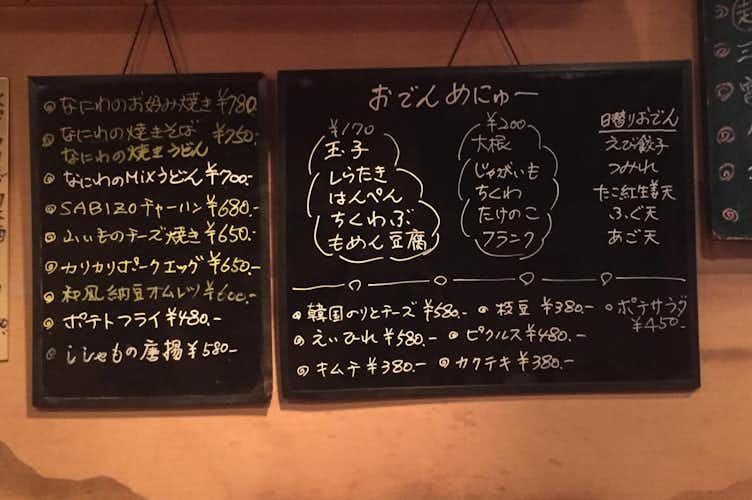 なにわのお好み焼き ¥780.
なにわの焼きそば ¥750.-
なにわの焼きうどん
なにわのMixうどん ¥700.-
SABIZOチャーハン ¥680.-
ものチーズ焼き ¥650.-
カリカリポークエッグ ¥650.-
和風納豆オムレツ ¥600.-
ポテトフライ ¥480.-
ししゃもの唐揚 ¥580-
おでんめにゅー
¥170
玉子
しらたき
はんぺん
ちくわぶ
もめん豆腐
¥200
大根
じゃがいも
ちくわ
たけのこ
フランク
日替りおでん
えび餃子
つみれ
たこ紅生姜天
ふぐ天
あご天
韓国のりとチーズ ¥580.- 枝豆 ¥380.- ポテサラダ
¥450-
えいひれ ¥580.- ピクルス ¥480.-
キムチ ¥380.- カクテキ ¥380.-